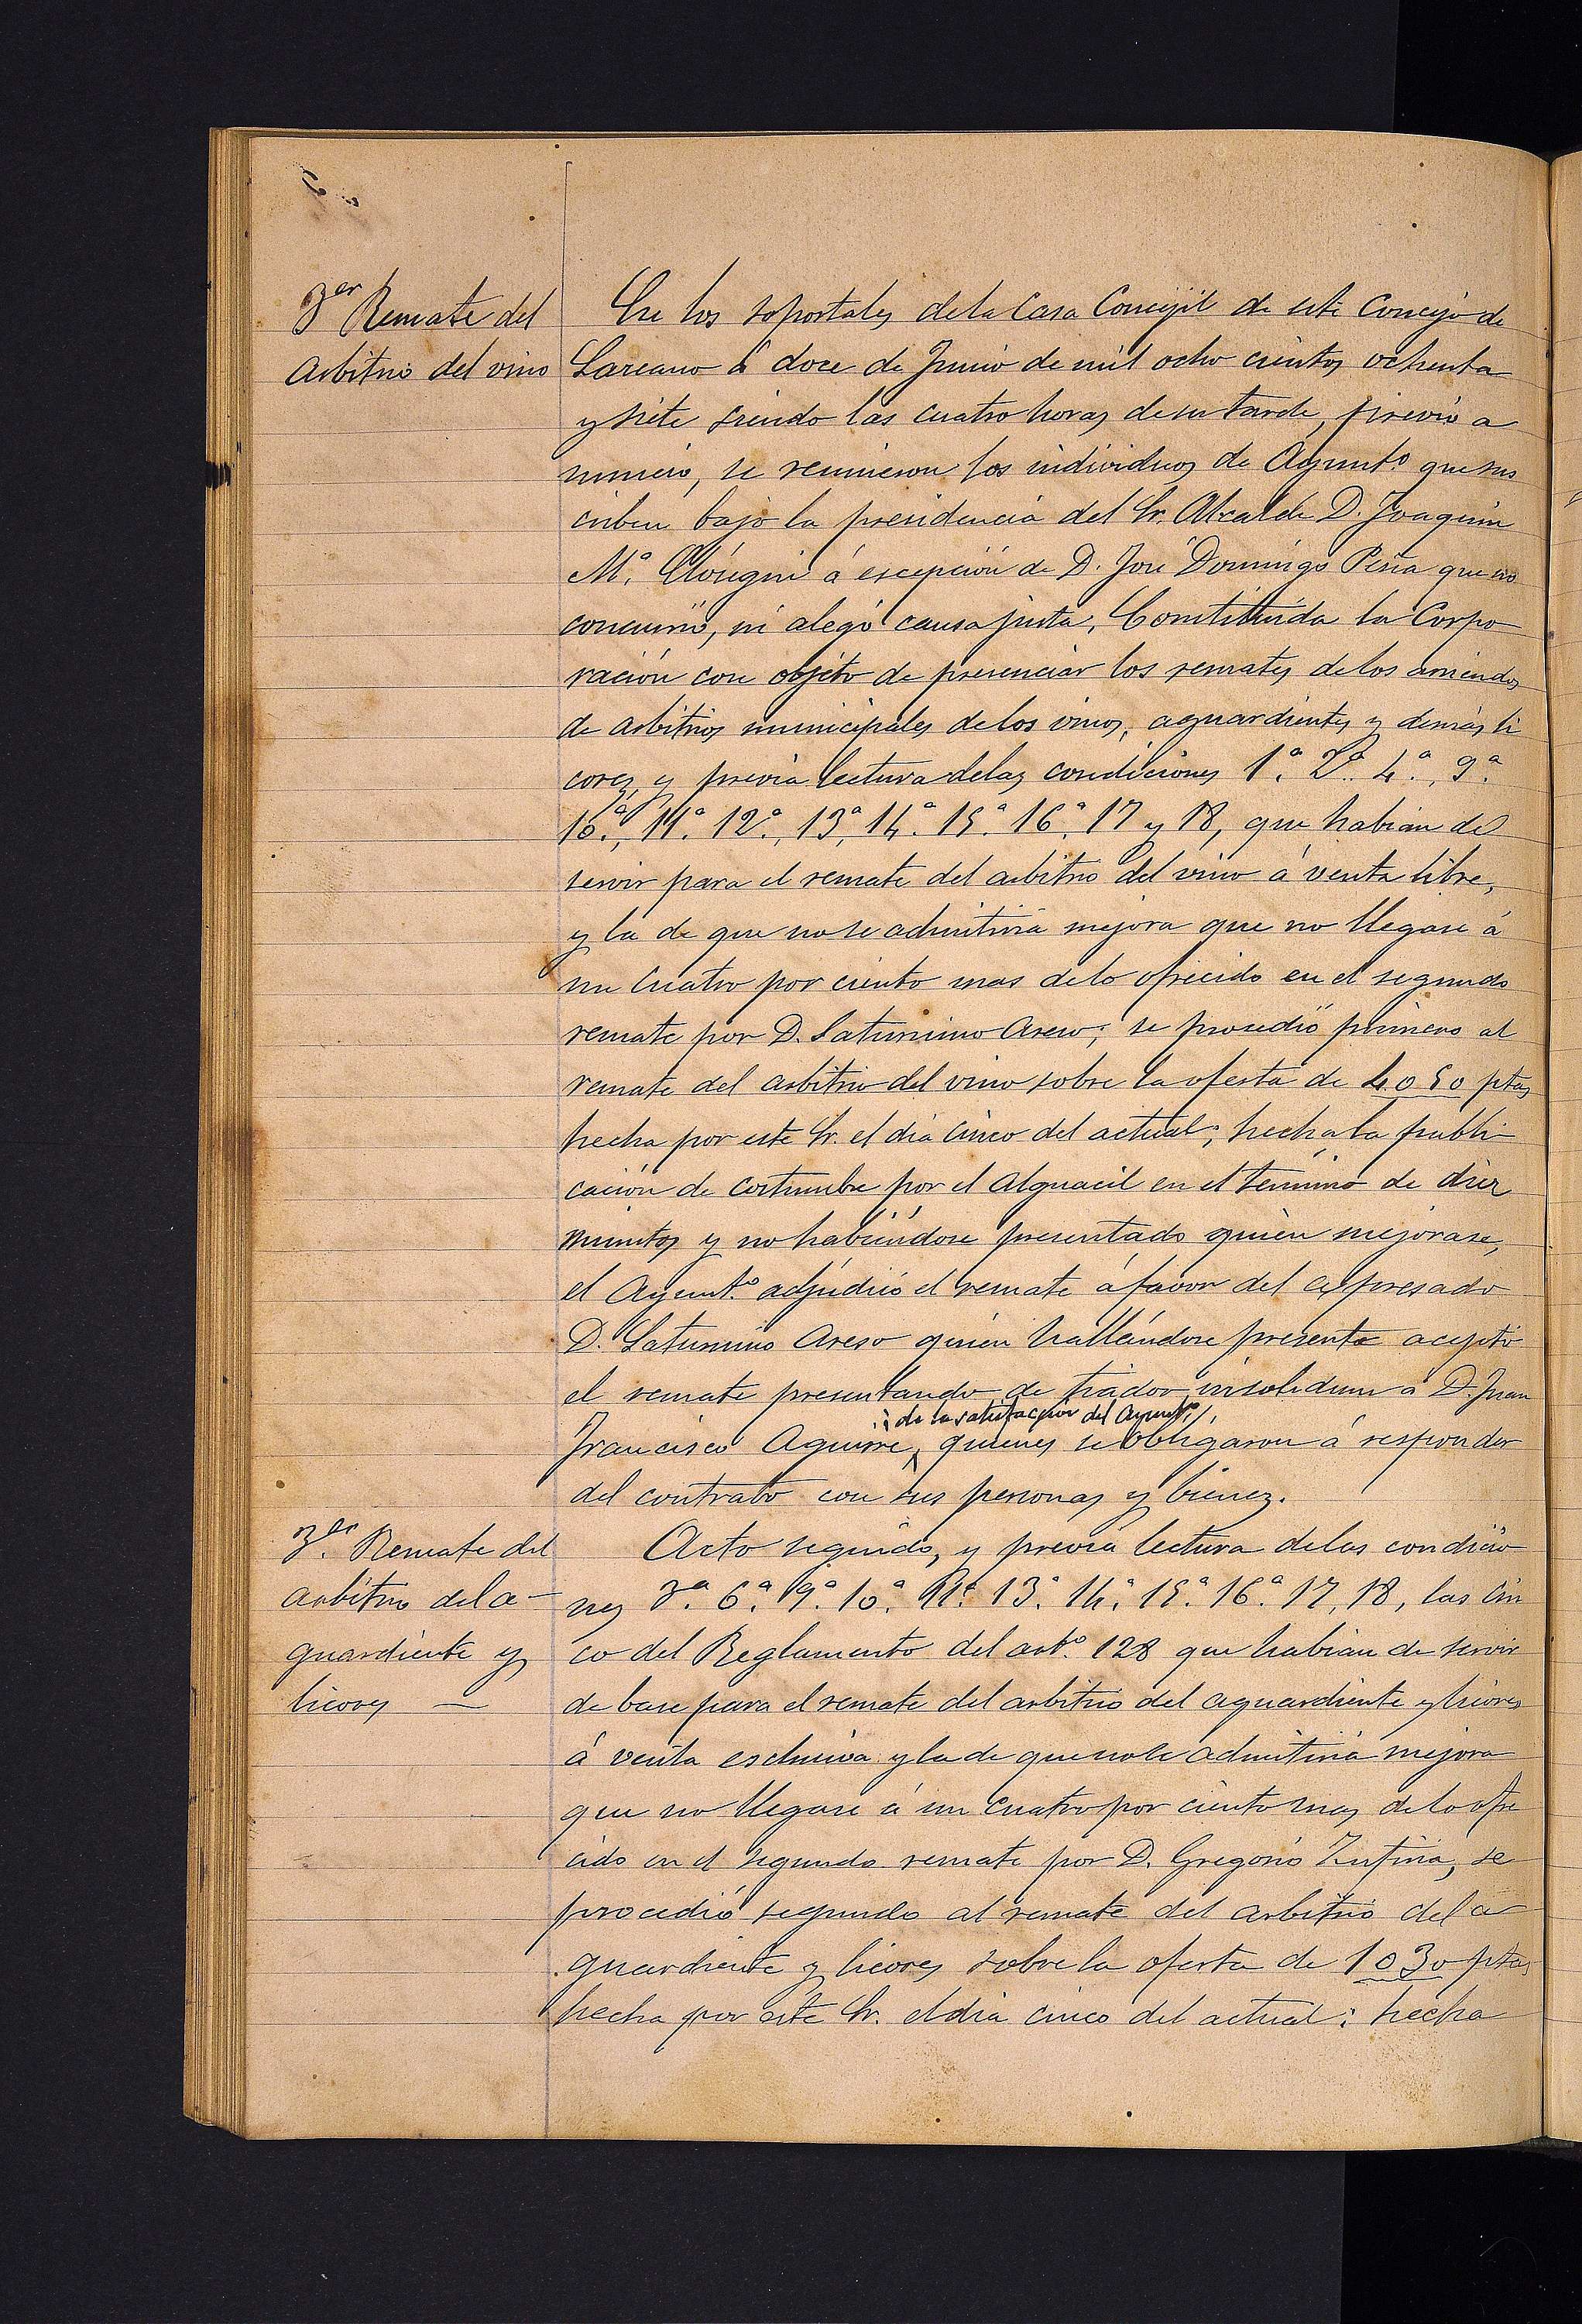 3er Remate del
arbitrio del vino
En los soportales de la Casa Concejil de este Concejo de
Larcano á doce de Junio de mil ocho cientos ochenta
y siete siendo las cuatro horas de su tarde, previo a
nuncio, se reunieron los individuos de Ayunt.º que sus
criben bajo la presidencia del Sr. Alcalde D. Joaquin
M.ª á escepción de D. José Domingo Peña que no
concurrió, ni alegó causa justa; Constituida la Corpo
ración con objeto de presenciar los remates de los arriendos
de arbitrios municipales de los vinos, aguardientes y demás li
cores, y previa lectura de las condiciones 1.ª 2.ª 4.ª, 9.ª
10.ª, 11.ª 12.ª, 13.ª, 14.ª 15.ª 16.ª 17 y 18, que habian de
servir para el remate del arbitrio del vino á venta libre,
y la de que no se admitiria mejora que no llegase á
un cuatro por ciento mas de lo ofrecido en el segundo
remate por D. Saturnino Areso; se procedió primero al
remate del arbitrio del vino sobre la oferta de 4050 ptas
hecha por este Sr. el dia cinco del actual; hecha la publi-
cación de costumbre por el Alguacil en el término de diez
minutos y no habiéndose presentado quien mejorase,
el Ayunt.º adjudicó el remate á favor del espresado
D. Saturnino Areso quien hallándose presente aceptó
el remate presentando de fiador insolidum á D. Juan
de la satisfacción del Ayunt.º
Francisco Aguirre, quienes se obligaron á responder
del contrato con sus personas y bienez.
3.er Remate del
arbitrio del a-
guardiente y
licores —
Acto seguido, y previa lectura de las condicio
nes 3.ª 6.ª 9.ª 10.ª 11.ª 13.ª 14.ª 15.ª 16.ª 17, 18, las cin
co del Reglamento del art.º 128 que habian de servir
de base para el remate del arbitrio del aguardiente y licores
á venta esclusiva y la de que no se admitiria mejora
que no llegase á un cuatro por ciento mas de lo ofre
cido en el segundo remate por D. Gregorio Zufiria, se
procedió segundo al remate del arbitrio del a
guardiente y licores sobre la oferta de 1030 ptas
hecha por este Sr. el dia cinco del actual; hecha